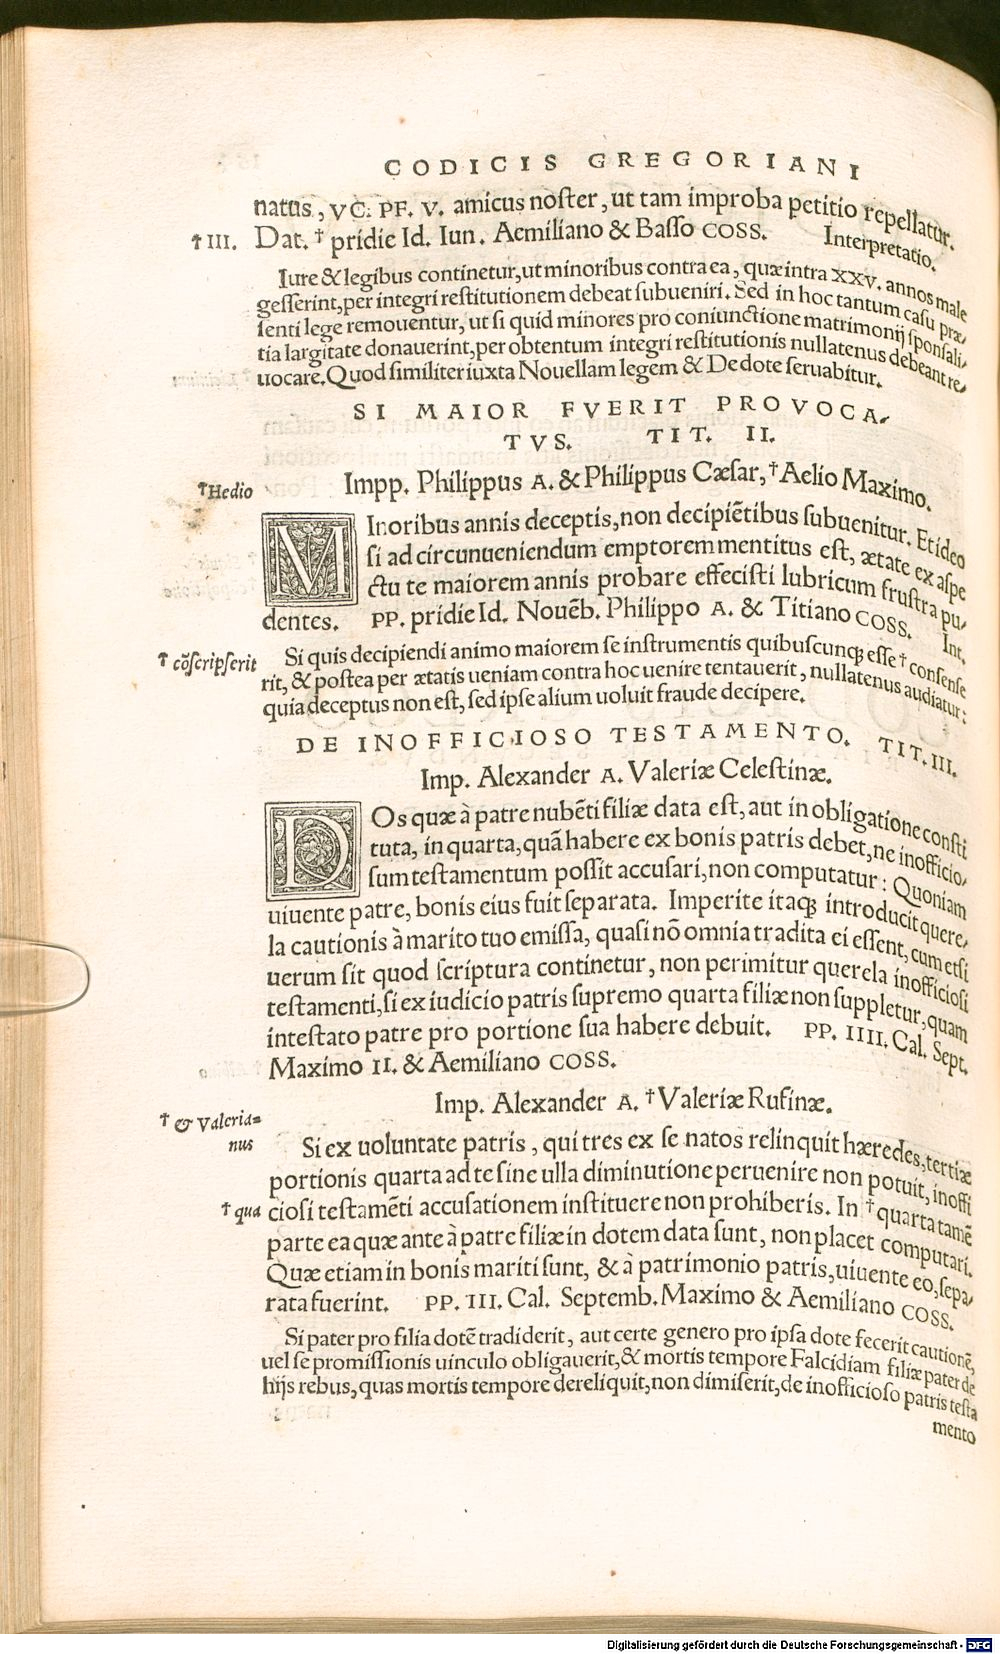 CODICIS GREGORIANI
natus, VC. PF. V. amicus noster, ut tam improba petitio repellatur.
† III. Dat. † pridie Id. Iun. Aemiliano & Basso COSS. Interpretatio.
Iure & legibus continetur, ut minoribus contra ea, quæ intra XXV. annos male
gesserint, per integri restitutionem debeat subueniri. Sed in hoc tantum casu præ-
senti lege remouentur, ut si quid minores pro coniunctione matrimonij sponsali-
tia largitate donauerint, per obtentum integri restitutionis nullatenus debeant re-
uocare. Quod similiter iuxta Nouellam legem & De dote seruabitur.
SI MAIOR FVERIT PROVOCA-
TVS. TIT. II.
†Hedio Impp. Philippus A. & Philippus Cæsar, † Aelio Maximo.
MInoribus annis deceptis, non decipiẽtibus subuenitur. Et ideo
si ad circunueniendum emptorem mentitus est, ætate ex aspe
ctu te maiorem annis probare effecisti lubricum frustra pu-
dentes. PP. pridie Id. Nouẽb. Philippo A. & Titiano COSS. Int.
† cõscripserit Si quis decipiendi animo maiorem se instrumentis quibuscunqꝫ esse † consense
rit, & postea per ætatis ueniam contra hoc uenire tentauerit, nullatenus audiatur:
quia deceptus non est, sed ipse alium uoluit fraude decipere.
DE INOFFICIOSO TESTAMENTO. TIT. III.
Imp. Alexander A. Valeriæ Celestinæ.
DOs quæ à patre nubẽti filiæ data est, aut in obligatione consti
tuta, in quarta, quã habere ex bonis patris debet, ne inofficio-
sum testamentum possit accusari, non computatur: Quoniam
uiuente patre, bonis eius fuit separata. Imperite itaqꝫ introducit quere-
la cautionis à marito tuo emissa, quasi nõ omnia tradita ei essent, cum etsi
uerum sit quod scriptura continetur, non perimitur querela inofficiosi
testamenti, si ex iudicio patris supremo quarta filiæ non suppletur, quam
intestato patre pro portione sua habere debuit. PP. IIII. Cal. Sept.
Maximo II. & Aemiliano COSS.
Imp. Alexander A. † Valeriæ Rufinæ.
† & Valeria=
nus
Si ex uoluntate patris, qui tres ex se natos relinquit hæredes, tertiæ
portionis quarta ad te sine ulla diminutione peruenire non potuit, inoffi
† qua ciosi testamẽti accusationem instituere non prohiberis. In † quarta tamẽ
parte ea quæ ante à patre filiæ in dotem data sunt, non placet computari.
Quæ etiam in bonis mariti sunt, & à patrimonio patris, uiuente eo, sepa-
rata fuerint. PP. III. Cal. Septemb. Maximo & Aemiliano COSS.
Si pater pro filia dotẽ tradiderit, aut certe genero pro ipsa dote fecerit cautionẽ,
uel se promissionis uinculo obligauerit, & mortis tempore Falcidiam filiæ pater de
hijs rebus, quas mortis tempore dereliquit, non dimiserit, de inofficioso patris testa
mento
Digitalisierung gefördert durch die Deutsche Forschungsgemeinschaft - DFG